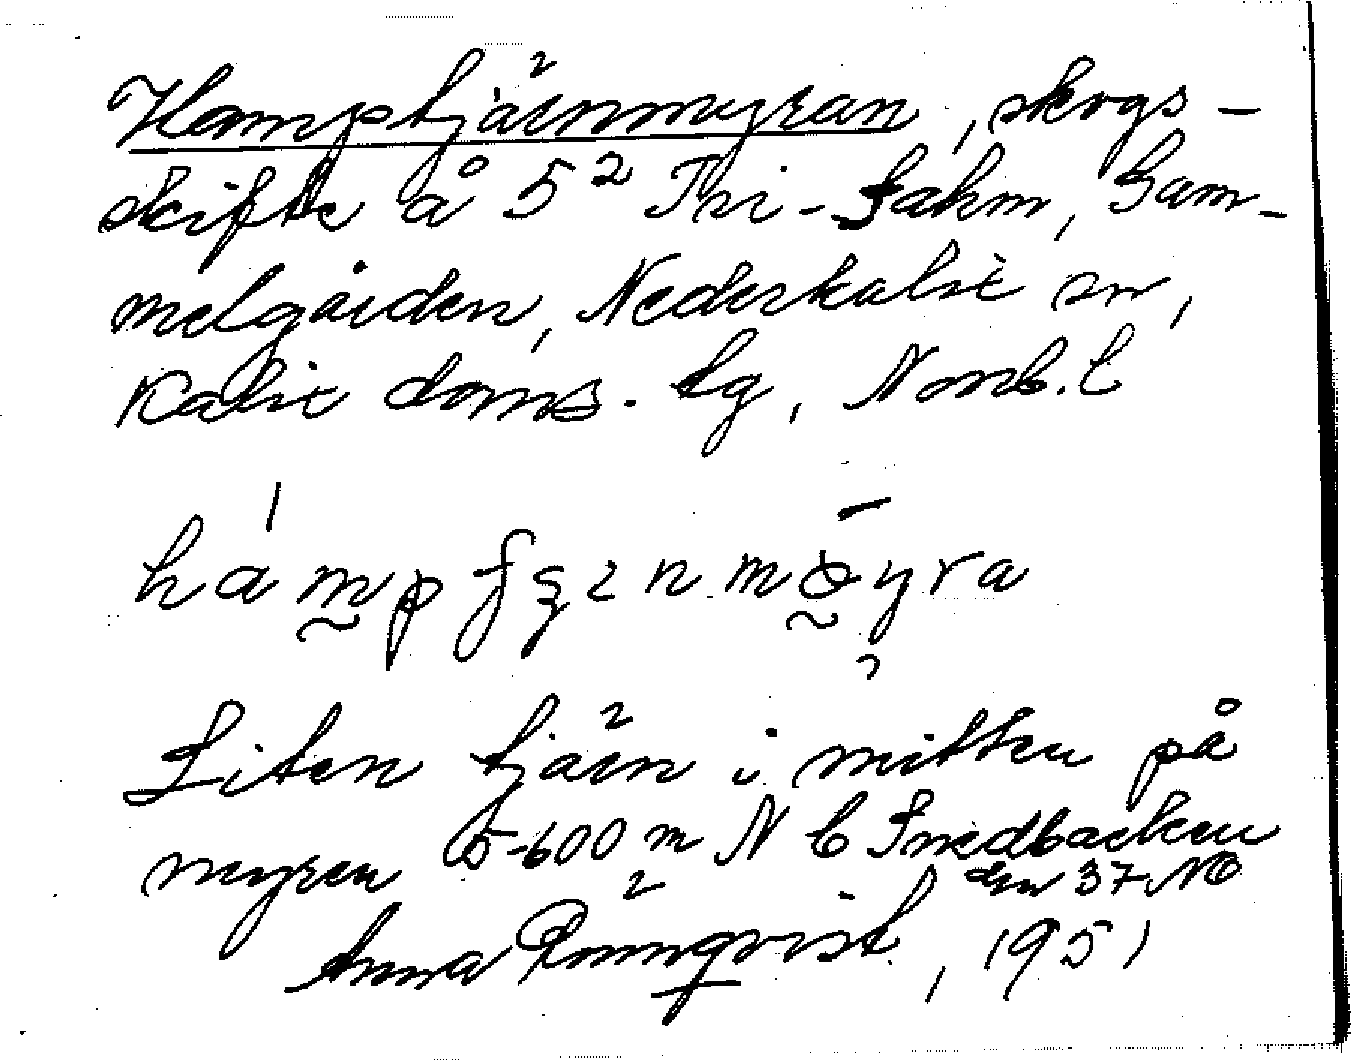 Hampstjärnmyran, skogs-
skifte å 5² Tri-Sahm, Gam-
melgården, Nederkalix sn,
Kalix doms. lg, Norrb. l
hampfȥznmøyra
Liten tjärn i mitten på
myren 5-600 m N C Smedbacken
Anna Rönnqvist, 1951